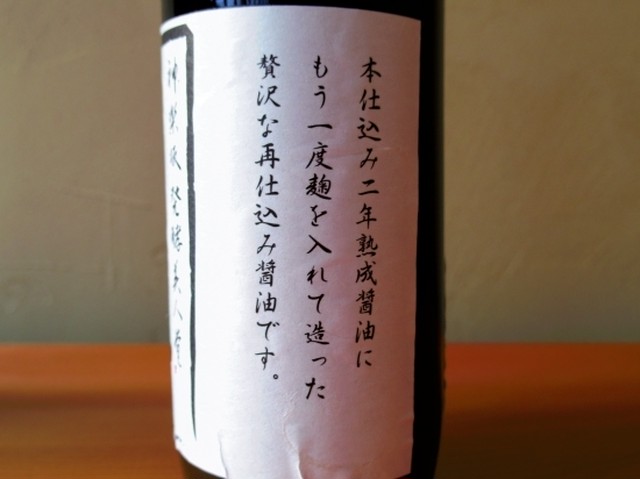 本仕込み二年熟成醤油に
もう一度麹を入れて造った
贅沢な再仕込み醤油です。
神楽坂発酵美人堂